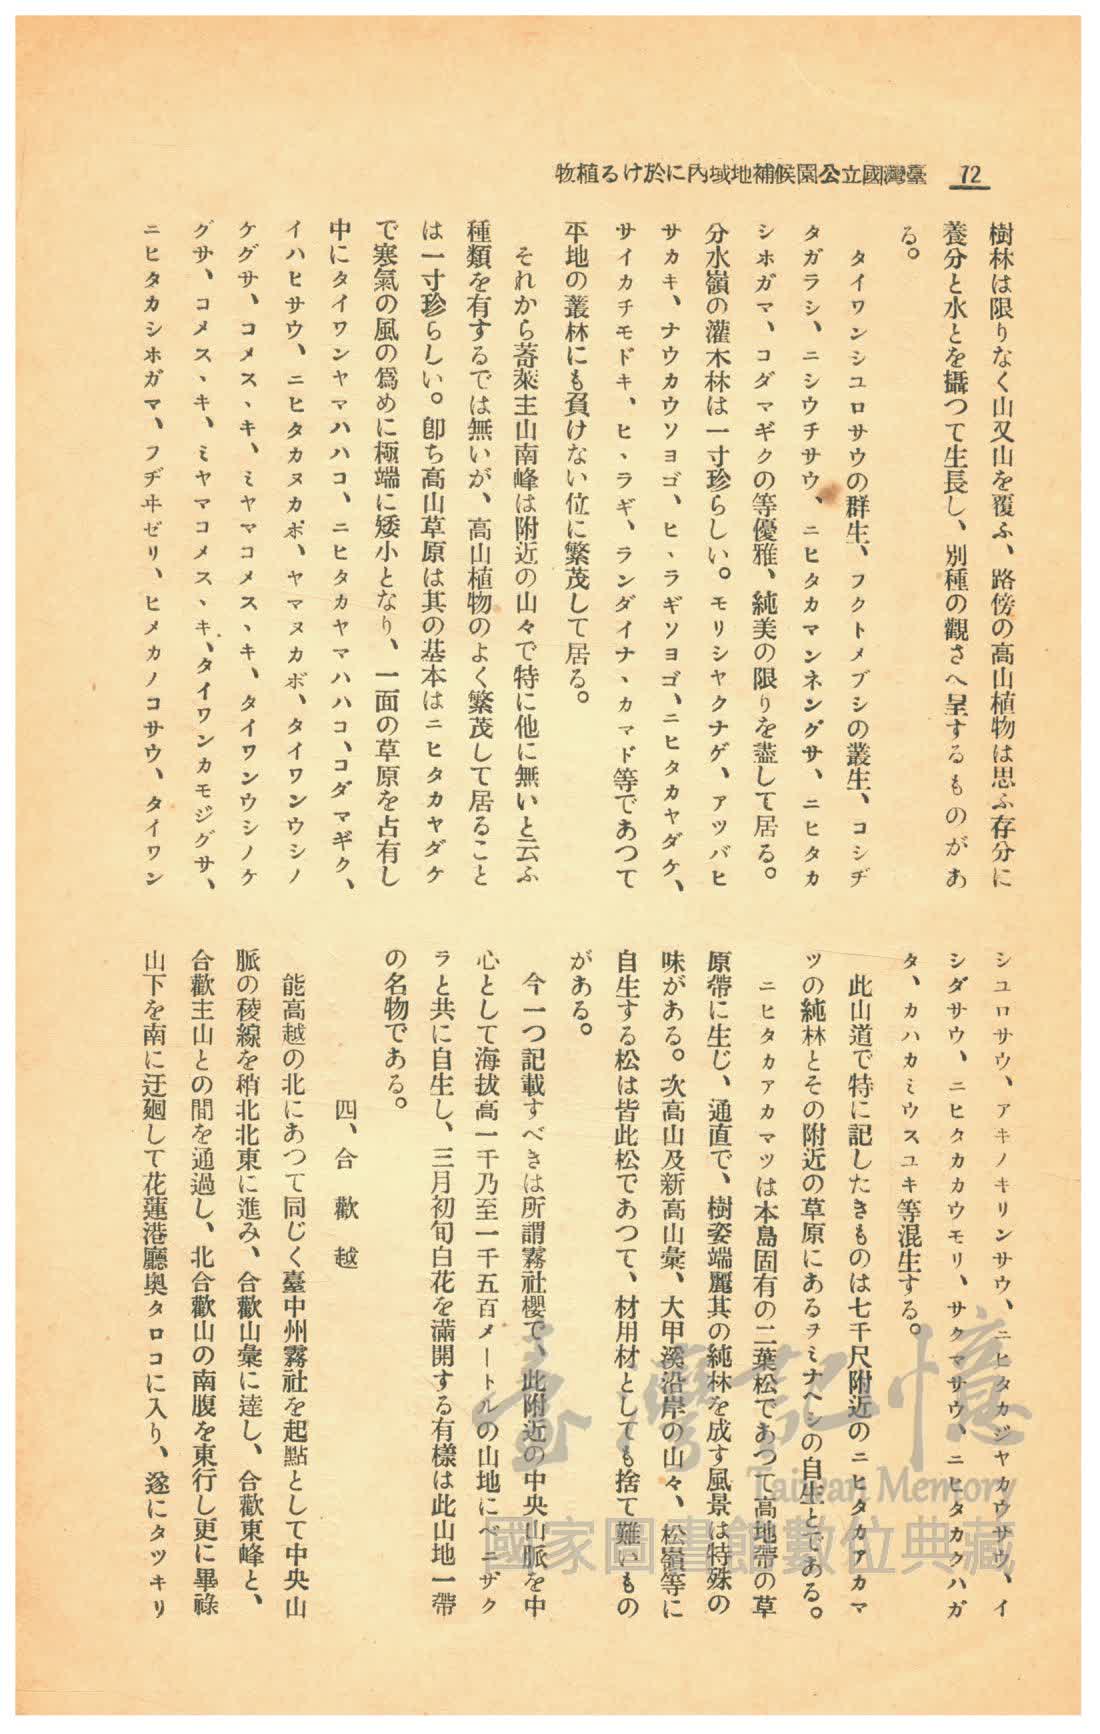 臺灣國立公園候補地域內に於ける植物
72
樹林は限りなく山又山を覆ふ、路傍の高山植物は思ふ存分に
養分と水とを攝つて生長し、別種の觀さへ呈するものがあ
る。
タイワンシユロサウの群生、フクトメブシの叢生、コシヂ
タガラシ、ニシウチサウ、ニヒタカマンネングサ、ニヒタカ
シホガマ、コダマギクの等優雅、純美の限りを盡して居る。
分水嶺の灌木林は一寸珍らしい。モリシヤクナゲ、アツバヒ
サカキ、ナウカウソヨゴ、ヒヽラギソヨゴ、ニヒタカヤダケ、
サイカチモドキ、ヒヽラギ、ランダイナヽカマド等であつて
平地の叢林にも負けない位に繁茂して居る。
それから蕃萊主山南峰は附近の山々で特に他に無いと云ふ
種類を有するでは無いが、高山植物のよく繁茂して居ること
は一寸珍らしい。卽ち高山草原は其の基本はニヒタカヤダケ
で寒氣の風の爲めに極端に矮小となり、一面の草原を占有し
中にタイワンヤマハハコ、ニヒタカヤマハハコ、コダマギク、
イハヒサウ、ニヒタカヌカボ、ヤマヌカボ、タイワンウシノ
ケグサ、コメスヽキ、ミヤマコメスヽキ、タイワンウシノケ
グサ、コメスヽキ、ミヤマコメスヽキ、タイワンカモジグサ、
ニヒタカシホガマ、フヂヰゼリ、ヒメカノコサウ、タイワン
シユロサウ、アキノキリンサウ、ニヒタカジヤカウサウ、イ
シダサウ、ニヒタカカウモリ、サクマサウ、ニヒタカクハガ
タ、カハカミウスユキ等混生する。
此山道で特に記したきものは七千尺附近のニヒタカアカマ
ツの純林とその附近の草原にあるヲミナヘシの自生とである。
ニヒタカアカマツは本島固有の二葉松であつて高地帶の草
原帶に生じ、通直で、樹姿端麗其の純林を成す風景は特殊の
味がある。次高山及新高山彙、大甲溪沿岸の山々、松嶺等に
自生する松は皆此松であつて、材用材としても捨て難いもの
がある。
今一つ記載すべきは所謂霧社櫻で、此附近の中央山脈を中
心として海拔高一千乃至一千五百メートルの山地にベニザク
ラと共に自生し、三月初旬白花を滿開する有樣は此山地一帶
の名物である。
四、合歡越
能高越の北にあつて同じく臺中州霧社を起點として中央山
脈の稜線を稍北北東に進み、合歡山彙に達し、合歡東峰と、
合歡主山との間を通過し、北合歡山の南腹を東行し更に畢祿
山下を南に迂廻して花蓮港廳奧タロコに入り、遂にタツキリ
臺灣記憶
Taiwan Memory
國家圖書館數位典藏